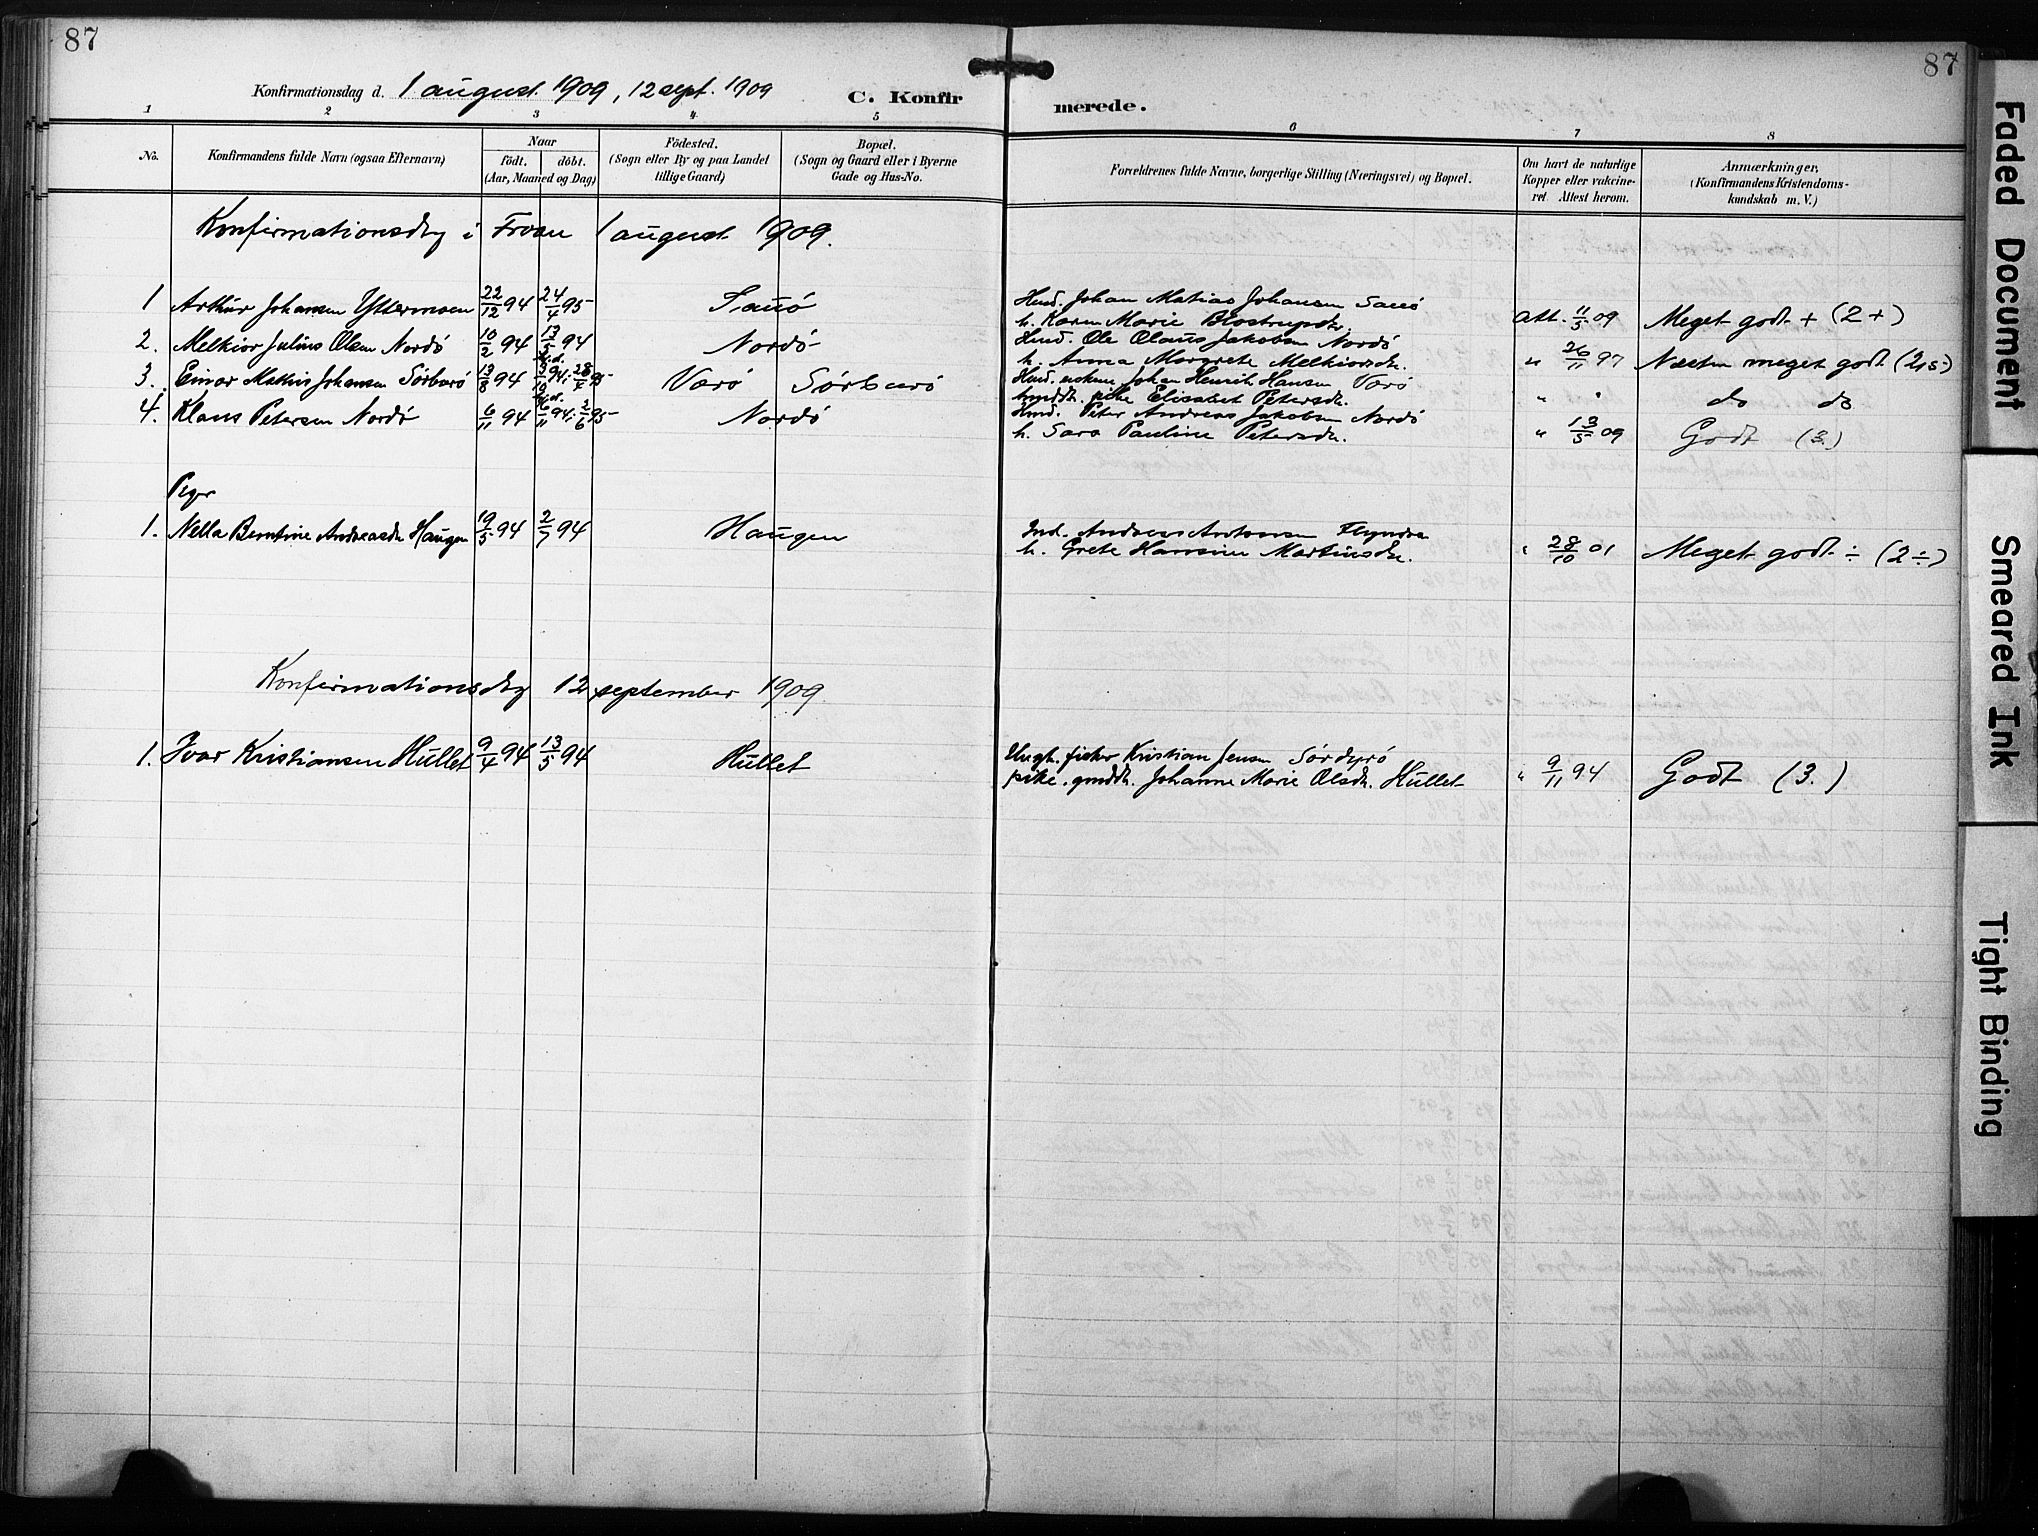 87
87
Konfirmationsdag d. 1 august 1909, 12 sept. 1909
C. Konfirmerede.
1 2 3 4 5 6 7 8
No.
Konfirmandens fulde Navn (ogsaa Efternavn)
Naar
födt. döbt.
(Aar, Maaned og Dag)
Födested.
(Sogn eller By og paa Landet
tillige Gaard)
Bopæl.
(Sogn og Gaard eller i Byerne
Gade og Hus-No.
Forældrenes fulde Navne, borgerlige Stilling (Næringsvei) og Bopæl.
Om havt de naturlige
Kopper eller vakcine-
ret Attest herom.
Anmærkninger,
(Konfirmandens Kristendoms-
kundskab m. V.)
Konfirmationsdag i Froan 1 august 1909.
1 Arthur Johansen Yttermoen 22/12 94 24/4 95 Sauö Husb. Johan Matias Johansen Sauö
h. Karen Marie att. 11/5 09 Meget godt + (2+)
2. Melkior Julius Olsen Nordö 10/2 94 13/5 94 Nordö Husb. Ole Olaus Jakobsen Nordö
h. Anna Margrete Melkiorsdr. " 26/11 97 Næsten meget godt (2,5)
3. Einar Matius Johansen Sörburö 13/8 94 Værö Sörburö Husb. enkem. Johan Henrik Hansen Værö
pike Elisabet Petersdr. " " do do
4. Klaus Petersen Nordö 6/11 94 Nordö Husb. Peter Andreas Jakobsen Nordö
h. Sara Pauline Petersdr. " 13/5 09 Godt (3.)
Piger
1. Nella Berntine Andreasdr Haugen 19/5 94 2/7 94 Haugen Ind. Andreas Antonsen Flyndra
h. Grete Hansine Martinsdr. " 28/10 01 Meget godt ÷ (2÷)
Konfirmationsdag 12 september 1909.
1. Ivar Kristiansen Hullet 9/4 94 13/5 94 Hullet Ungk. fisker Kristian Jensen Sördyrö
pike. gmddtr. Johanne Marie Olsdr. Hullet " 9/11 94 Godt (3.)
Faded Document
Smeared Ink
Tight Binding